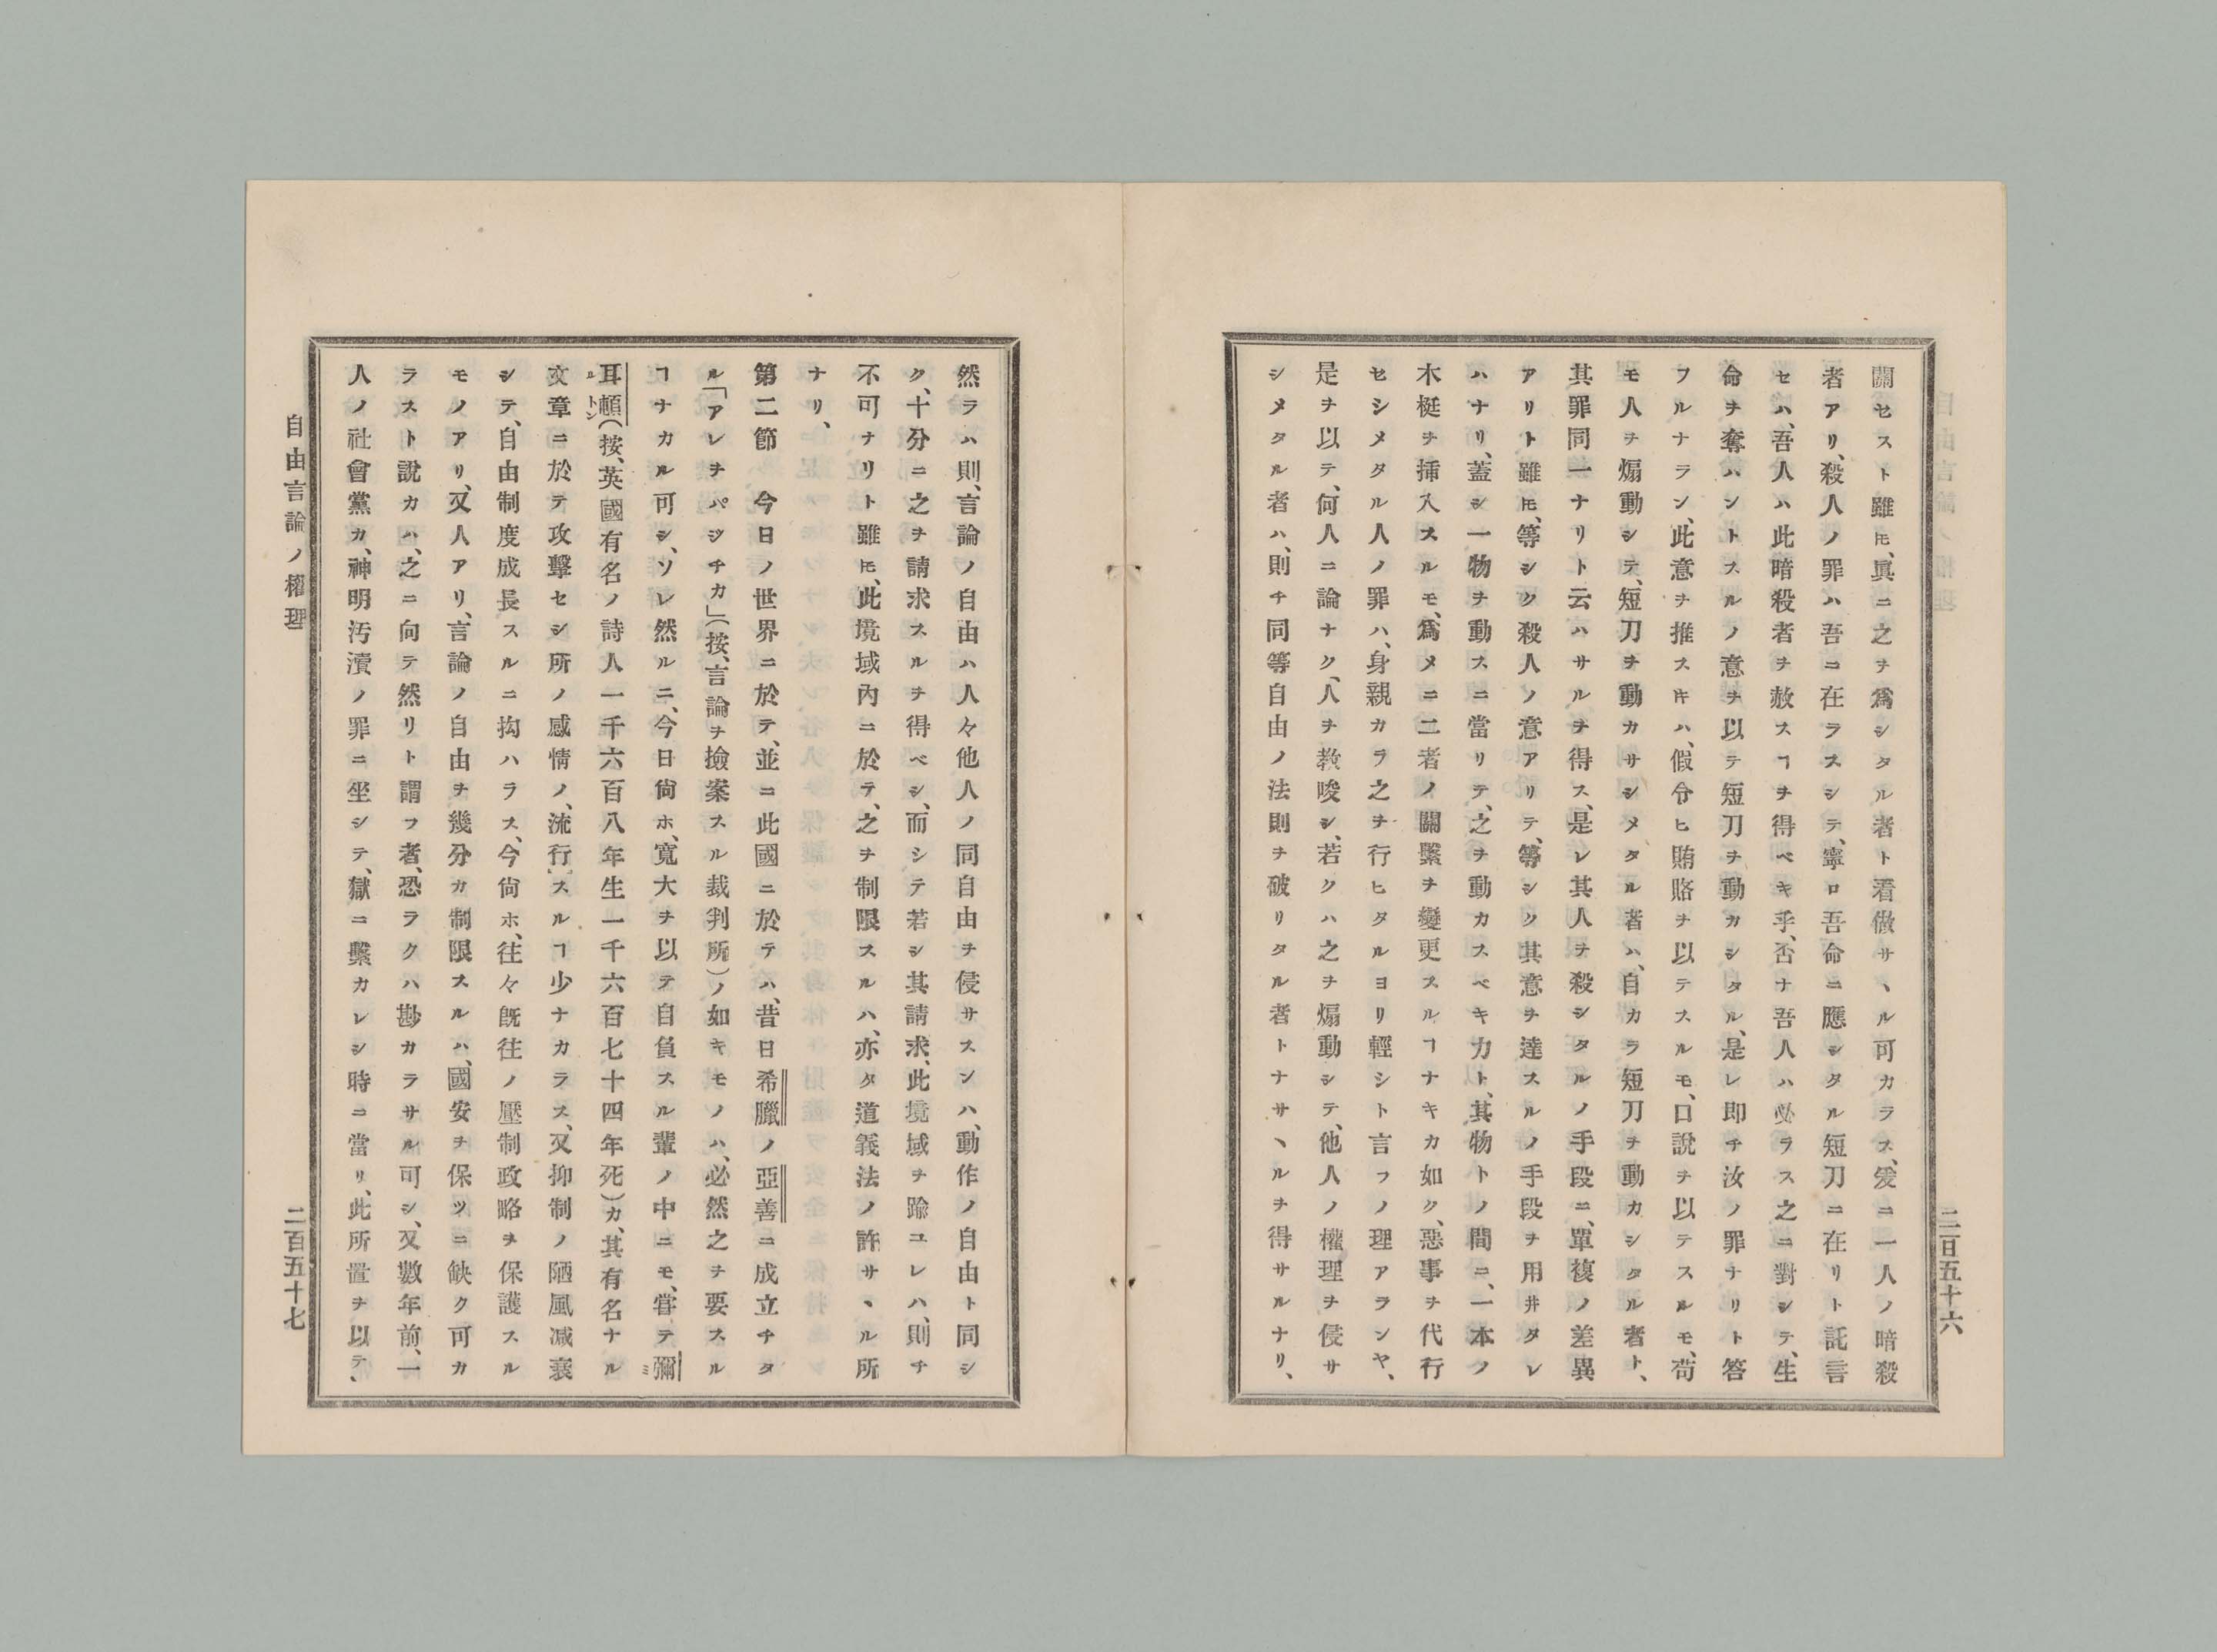 關セスト雖𪜈、眞ニ之ヲ爲シタル者ト看做サヽル可カラス、爰ニ一人ノ暗殺
者アリ、殺人ノ罪ハ吾ニ在ラスシテ、寧ロ吾命ニ應シタル短刀ニ在リト託言
セハ、吾人ハ此暗殺者ヲ赦スヿヲ得ベキ乎、否ナ吾人ハ必ラス之ニ對シテ、生
命ヲ奪ハントスルノ意ヲ以テ短刀ヲ動カシタル、是レ即チ汝ノ罪ナリト答
フルナラン、此意ヲ推スキハ、假令ヒ賄賂ヲ以テスルモ、口說ヲ以テスルモ、苟
モ人ヲ煽動シテ、短刀ヲ動カサシメタル者ハ、自カラ短刀ヲ動カシタル者ト、
其罪同一ナリト云ハサルヲ得ス、是レ其人ヲ殺シタルノ手段ニ、單複ノ差異
アリト雖𪜈、等シク殺人ノ意アリテ、等シク其意ヲ達スルノ手段ヲ用井タレ
ハナリ、蓋シ一物ヲ動スニ當リテ、之ヲ動カスベキ力ト、其物トノ間ニ、一本ノ
木梃ヲ揷入スルモ、爲メニ二者ノ關繫ヲ變更スルヿナキカ如ク、惡事ヲ代行
セシメタル人ノ罪ハ、身親カラ之ヲ行ヒタルヨリ輕シト言フノ理アランヤ、
是ヲ以テ、何人ニ論ナク、人ヲ敎唆シ、若クハ之ヲ煽動シテ、他人ノ權理ヲ侵サ
シメタル者ハ、則チ同等自由ノ法則ヲ破リタル者トナサヽルヲ得サルナリ、
二百五十六
然ラハ則、言論ノ自由ハ人々他人ノ同自由ヲ侵サスンハ、動作ノ自由ト同シ
ク、十分ニ之ヲ請求スルヲ得ベシ、而シテ若シ其請求、此境域ヲ踰ユレハ、則チ
不可ナリト雖𪜈、此境域內ニ於テ、之ヲ制限スルハ、亦タ道義法ノ許サヽル所
ナリ、
第二節　今日ノ世界ニ於テ、並ニ此國ニ於テハ、昔日希臘ノ亞善ニ成立チタ
ル「アレヲパジチカ」（按、言論ヲ撿案スル裁判所）ノ如キモノハ、必然之ヲ要スル
ヿナカル可シ、ソレ然ルニ、今日尙ホ、寬大ヲ以テ自負スル輩ノ中ニモ、甞テ彌ミ
耳頓ルトン（按、英國有名ノ詩人一千六百八年生一千六百七十四年死）カ、其有名ナル
文章ニ於テ攻擊セシ所ノ感情ノ、流行スルヿ少ナカラス、又抑制ノ陋風减衰
シテ、自由制度成長スルニ拘ハラス、今尙ホ、往々旣往ノ壓制政略ヲ保護スル
モノアリ、又人アリ、言論ノ自由ヲ幾分カ制限スルハ、國安ヲ保ツニ缺ク可カ
ラスト說カハ、之ニ向テ然リト謂フ者、恐ラクハ尠カラサル可シ、又數年前、一
人ノ社會黨カ、神明汚瀆ノ罪ニ坐シテ、獄ニ繫カレシ時ニ當リ、此所置ヲ以テ、
自由言論ノ權理
二百五十七